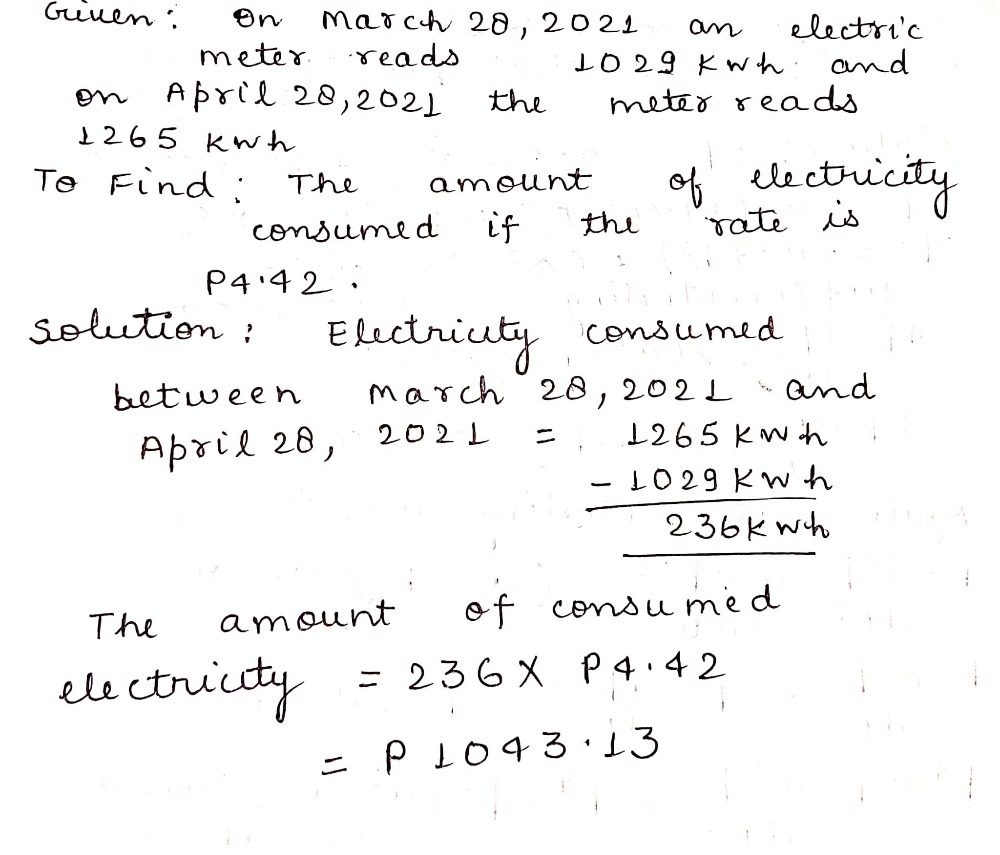 Given : On March 28, 2021 an electric
meter reads 1029 Kwh and
on April 28, 2021 the meter reads
1265 kwh
To Find : The amount of electricity
consumed if the rate is
P4.42 .
Solution : Electricity consumed
between March 28, 2021 and
April 28, 2021 = 1265 Kwh
- 1029 Kwh
236 Kwh
The amount of consumed
electricity = 236 X P4.42
= P 1043.13